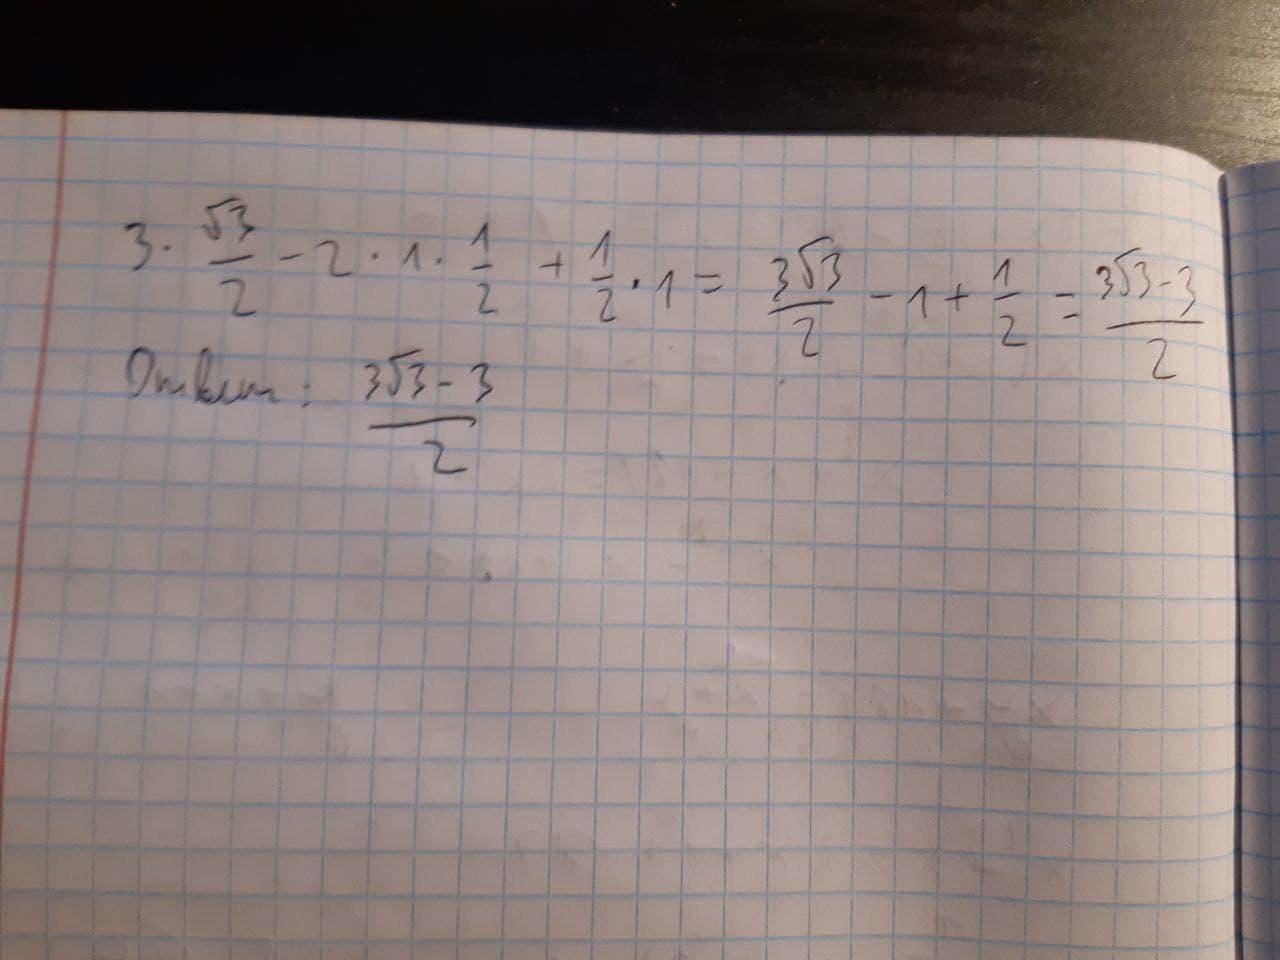 3 · √3/2 - 2 · 1 · 1/2 + 1/2 · 1 = 3√3/2 - 1 + 1/2 = 3√3-3/2
Ответ: 3√3-3/2